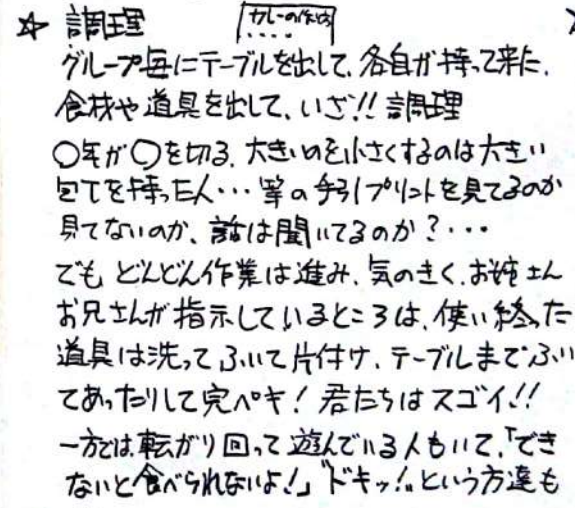 ☆ 調理 カレーの作り方
グループ毎にテーブルを出して、各自が持って来た、
食材や道具を出して、いざ!! 調理
○年が○を切る、大きいのを小さくするのは大きい
包丁を持った人…等の手引プリントを見てるのか
見てないのか、話は聞いてるのか?…
でも どんどん作業は進み、気のきく、お姉さん
お兄さんが指示しているところは、使い終った
道具は洗って ふいて片付け、テーブルまでふい
てあったりして完ペキ! 君たちはスゴイ!!
一方では、転がり回って遊んでいる人もいて、「でき
ないと食べられないよ!」"ドキッ!"という方達も